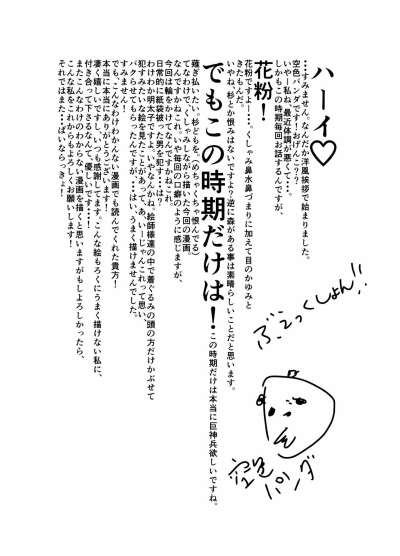 ハーイ♡
・・・すみません。なんだか洋風挨拶で始まりました。
空色パンダです!おげんこ?
いやー私ね、最近体調が悪くて・・・。
しかもこの時期毎回お話するんですが、
花粉!
花粉ですよー・・・。くしゃみ鼻水鼻づまりに加えて目のかゆみと
きたもんだ。
いやね、杉とか恨みはないですよ?逆に森がある事は素晴らしいことだと思います。
でもこの時期だけは!この時期だけは本当に巨神兵欲しいですね。
薙ぎ払いたい。杉どもを。(めちゃくちゃ恨んでる)
なわけで、くしゃみしながら描いた今回の漫画。
なんですかねこれ。いや毎回の口癖のように感じますが、
今回は輪をかけてなんですかねこれ。
日常的に紙袋被った男を犯す・・・は?
わけわか明太子ですよ。いやなんかね、絵師様達の中で着ぐるみの頭の方だけかぶせて
犯すみたいな絵を見たことがあって、あ、いーじゃんこれって思い、
パクらせてもらったんですが・・・はい、うまく描けませんでした。
すみません!
でも、こんなわけわかんない漫画でも読んでくれた貴方!
本当に本当にありがとうございます!
凄く嬉しいです。いつも感謝してます。こんな絵もろくにうまく描けない私に、
付き合って下さるなんて、優しいです・・・!
またこんなわけのわからない漫画を描くと思いますがもしよろしかったら、
こんな私をこれからもよろしくお願いします!
それではまた・・・ばいならっきょ!
ぶえっくしょん!!
空色
パンダ